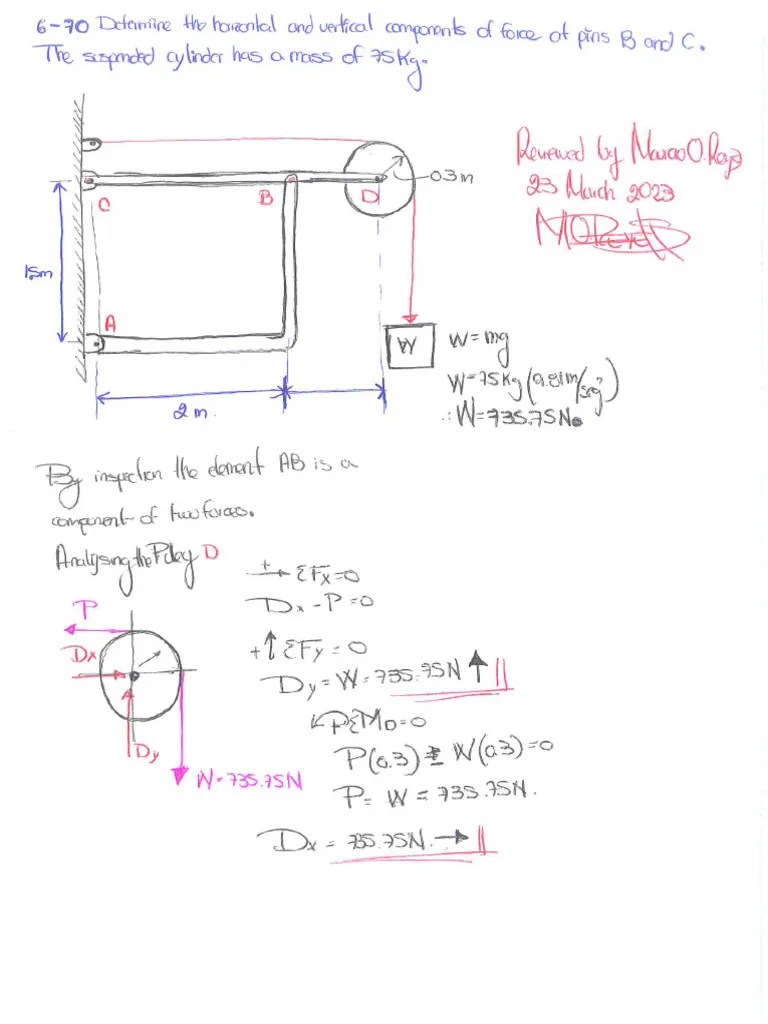 6-70 Determine the horizontal and vertical components of force at pins B and C.
The suspended cylinder has a mass of 75Kg.
Reviewed by Marco O.
23 March 2023
0.3m
C
B
D
1.5m
A
W
W = mg
W = 75Kg (9.81m/seg²)
∴ W = 735.75N
2m.
By inspection the element AB is a
component of two forces.
Analysing the Pulley D
+→ ΣFx = 0
Dx - P = 0
P
Dx
Dy
W = 735.75N
+↑ ΣFy = 0
Dy = W = 735.75N ↑ ||
ΣMD = 0
P(0.3) W(0.3) = 0
P = W = 735.75N.
Dx = 735.75N. → ||